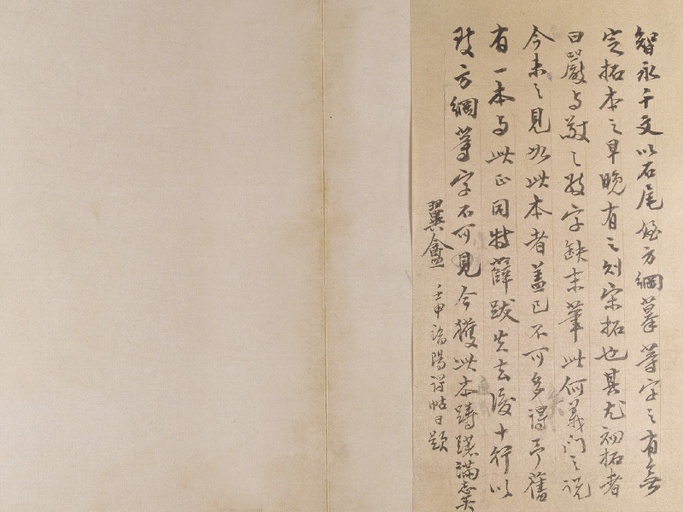 智永千文以石尾姪方綱摹等字之有無
定拓本之早晚有之則宋拓也其尤初拓者
曰嚴与敬之數字缺末筆此何義門之說
今未之見如此本者蓋已不可多得予舊
有一本与此正同特薛跋失去後十行以
致方綱等字不可見今獲此本躊躇滿志矣
翼盦 壬申 陽 帖日題